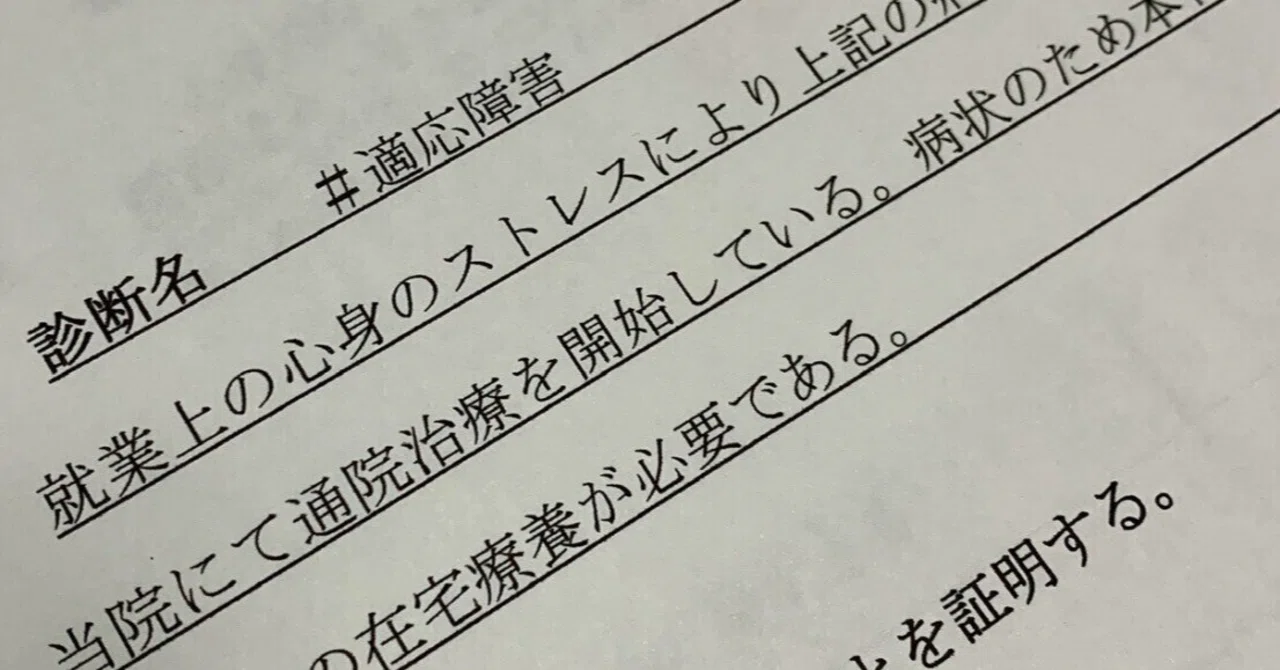 診断名 #適応障害
就業上の心身のストレスにより上記の病
当院にて通院治療を開始している。病状のため本
の在宅療養が必要である。
を証明する。